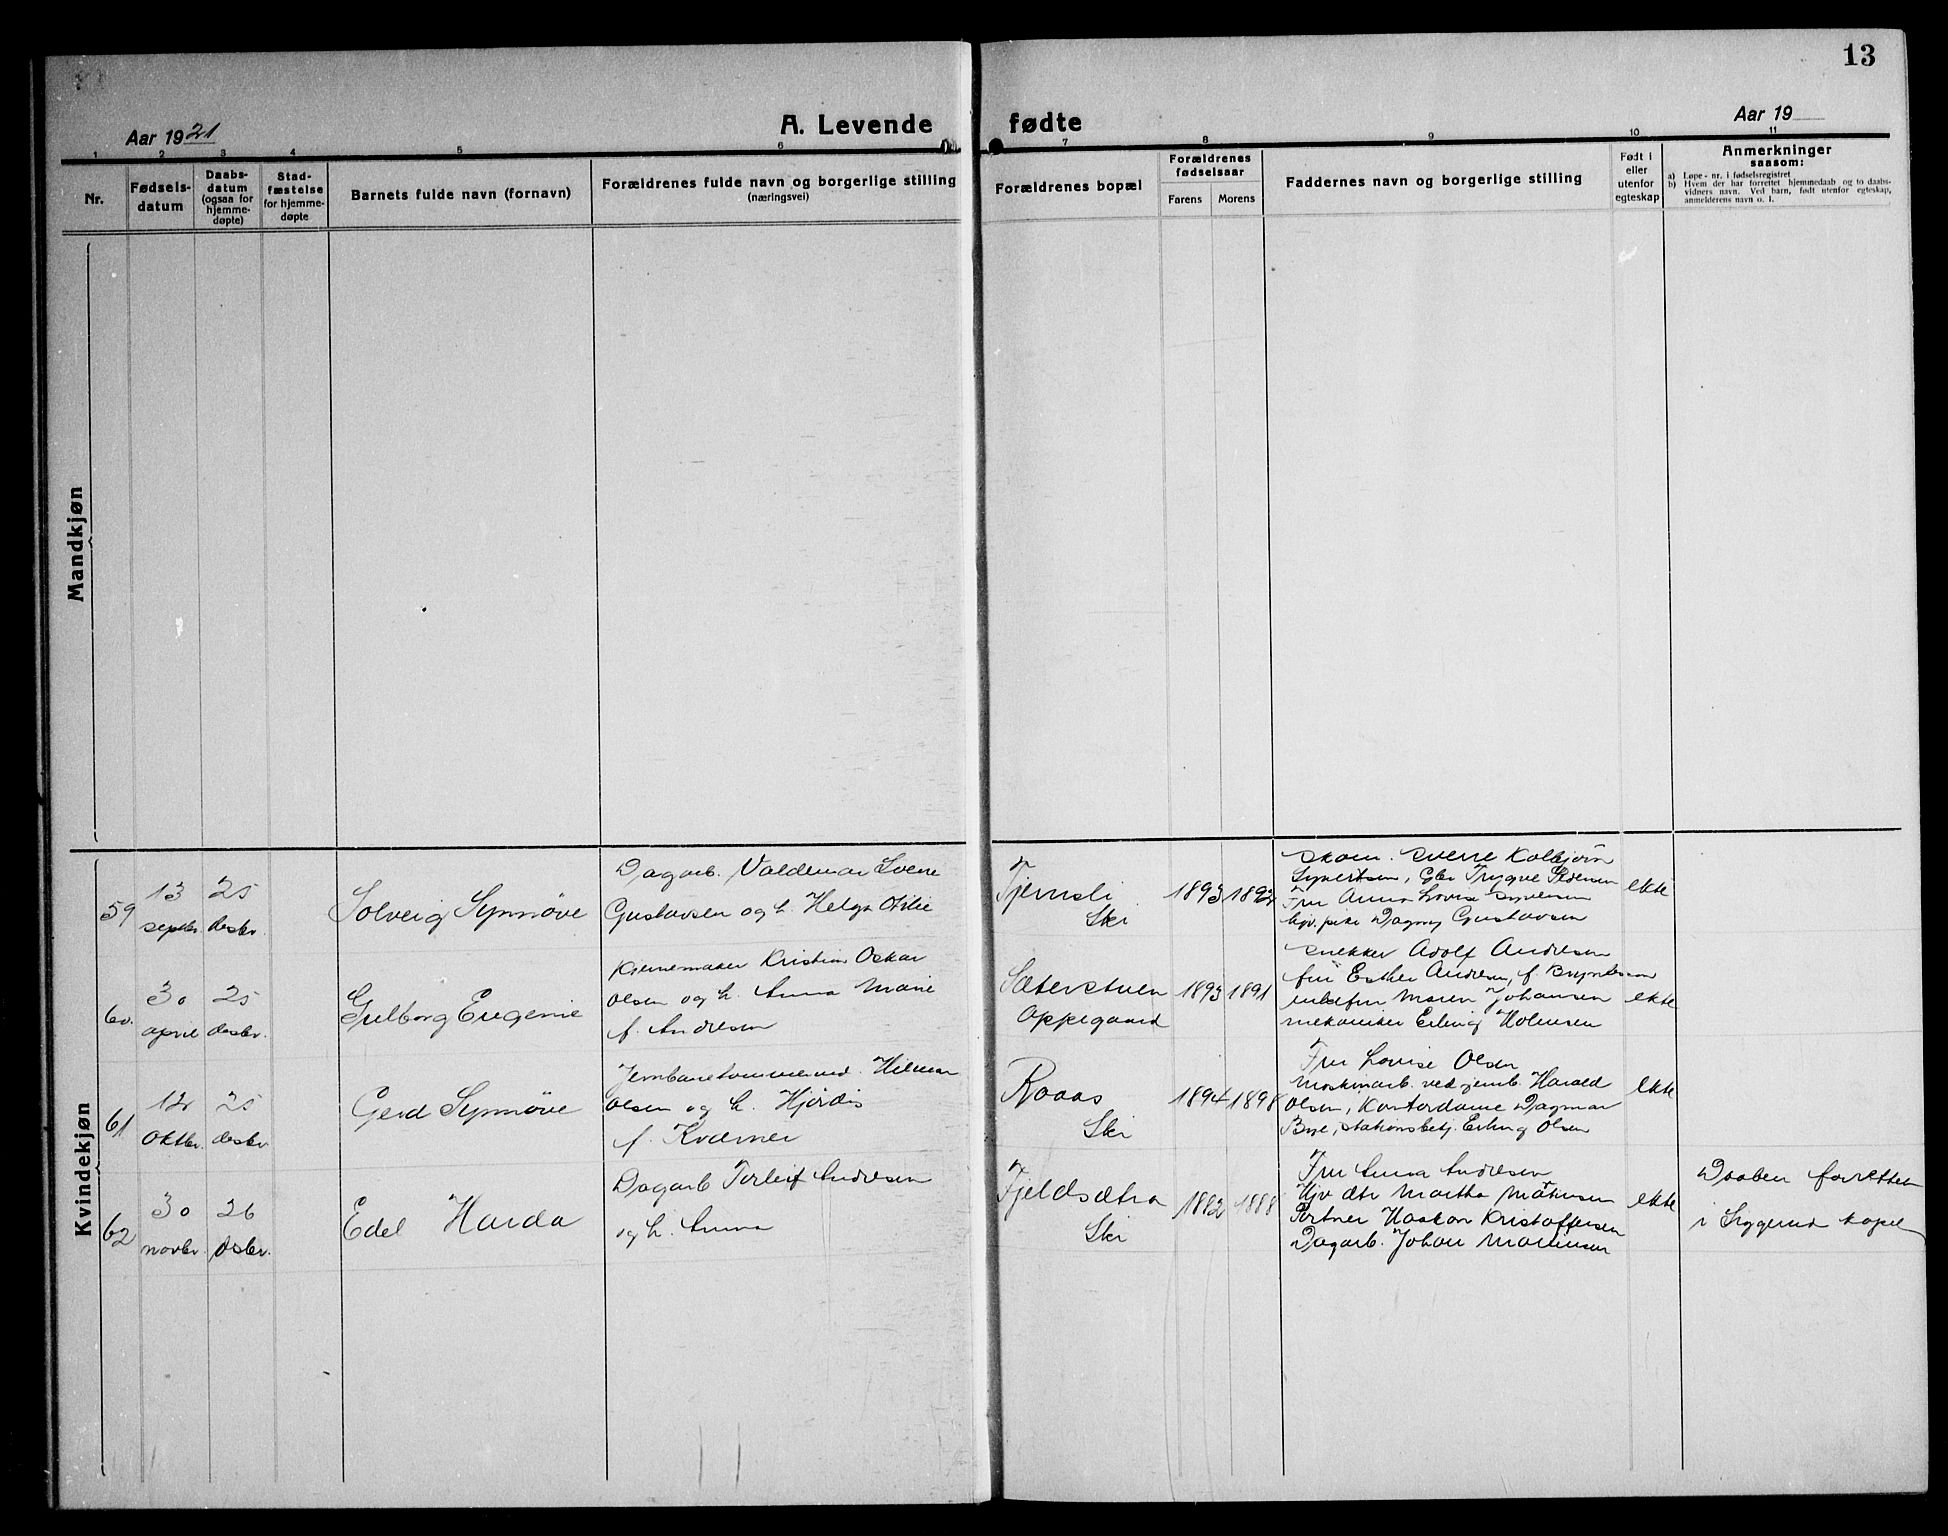 13
Aar 1921
A. Levende
fødte
Aar 19
1 2 3 4 5 6 7 8 9 10 11
Nr.
Fødsels-
datum
Daabs-
datum
(ogsaa for
hjemme-
døpte)
Stad-
fæstelse
for hjemme-
døpte
Barnets fulde navn (fornavn)
Forældrenes fulde navn og borgerlige stilling
(næringsvei)
Forældrenes bopæl
Forældrenes
fødselsaar
Farens
Morens
Faddernes navn og borgerlige stilling
Født i
eller
utenfor
egteskap
Anmerkninger
saasom:
a) Løpe-nr. i fødselsregistret
b) Hvem der har forrettet hjemmedaab og to daabs-
vidners navn. Ved barn, født utenfor egteskap,
anmelderens navn o. l.
Mandkjøn
Kvindekjøn
59
13
septbr.
25
desbr.
Solveig Synnöve
Dagarb. Valdemar Sverre
Gustavsen og h. Helga Otilie
Tjernsli
Ski
1893
Sverre Kolbjörn
Trygve Pedersen
Fru Anna Lovise
pike Dagny Gustavsen
ekte
60.
30
april
25
desbr.
Gulborg Eugenie
Kristian Oskar
Olsen og h. Anna Marie
f. Andresen
Sæterstuen
Oppegaard
1893
1891
snekker Adolf Andresen
fru Esther Andresen, f. Bryntesen
enkefru Maren Johansen
mekaniker Erling Holmsen
ekte
61
12
oktbr.
25
desbr
Gerd Synnöve
Jernbanetømmermd. Hilmar
Olsen og h. Hjördis
f. Kværner
Raaas
Ski
1894
1898
Fru Lovise Olsen
Maskinarb. ved jernb. Harald
Olsen, Kontordame Dagmar
Bye, stationsbetj. Erling Olsen
ekte
62
30
novbr.
26
desbr.
Edel Harda
Dagarb Torleif Andresen
og h. Anna
Fjeldsætra
Ski
1882
1888
Fru Anna Andresen
Hjv dtr Martha Mathisen
Portner Haakon Kristoffersen
Dagarb. Johan Martinsen
ekte
Daaben forrettet
i kapel